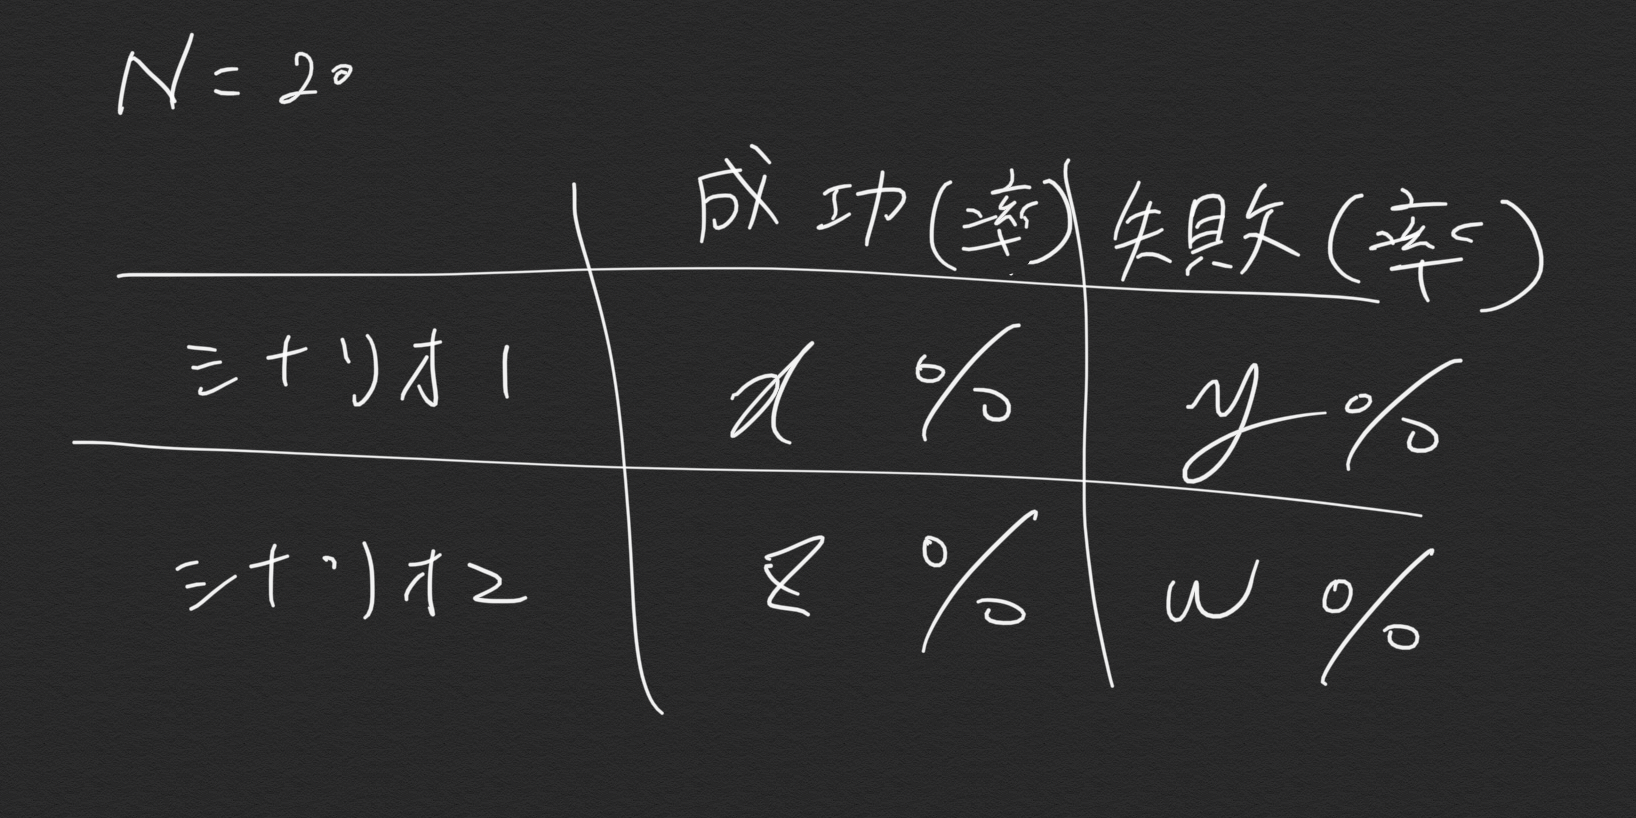 N=20
成功(率) 失敗(率)
シナリオ1 x % y %
シナリオ2 z % w %